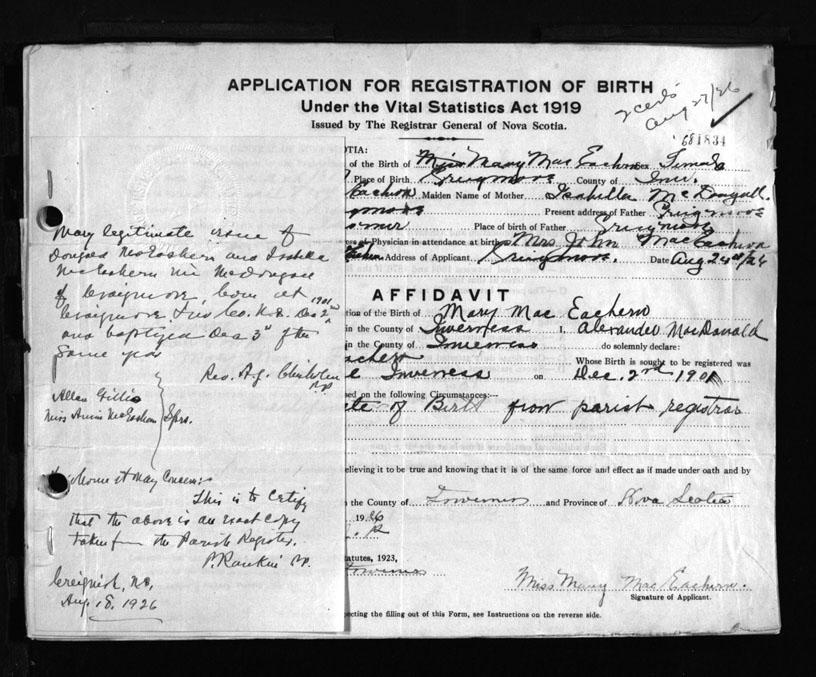 APPLICATION FOR REGISTRATION OF BIRTH
Under the Vital Statistics Act 1919
Issued by The Registrar General of Nova Scotia.
2 certs
Aug 27/26
681834
OTIA:
of the Birth of Miss Mary Mac Eachern Sex Female
Place of Birth Creigmore County of Inv.
Eachern Maiden Name of Mother Isabella McDougall
Present address of Father Creigmore
Place of birth of Father Creigmore
Physician in attendance at birth Mrs John MacEachern
Address of Applicant Creigmore Date Aug 24th/26
AFFIDAVIT
tion of the Birth of Mary Mac Eachern
in the County of Inverness I, Alexander MacDonald
in the County of Inverness do solemnly declare:
achern Whose Birth is sought to be registered was
Inverness on Dec. 2nd 1901
sed on the following Circumstances:—
of Birth from parish registrar
elieving it to be true and knowing that it is of the same force and effect as if made under oath and by
the County of Inverness and Province of Nova Scotia
1926
tatutes, 1923,
Inverness
Miss Mary Mac Eachern.
Signature of Applicant.
pecting the filling out of this Form, see Instructions on the reverse side.
Mary legitimate issue of
Dougald McEachern and Isabella
McEachern née McDougall
of Craigmore, born at
Craigmore, Inv. Co. N.S. Dec 2nd 1901
and baptized Dec 3rd of the
same year
Rev. A.J. Chisholm
P.P.
Allan Gillis
Miss Annie McEachern Sprs.
To whom it May Concern:
This is to Certify
that the above is an exact copy
taken from the Parish Register.
P. Rankin P.P.
Creignish, N.S.
Aug. 18, 1926